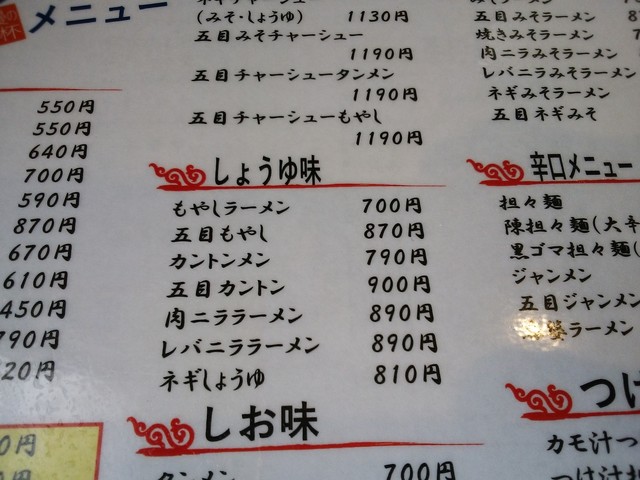 メニュー
550円
550円
640円
700円
590円
870円
670円
610円
450円
790円
20円
0円
(みそ・しょうゆ) 1130円
五目みそチャーシュー
1190円
五目チャーシュータンメン
1190円
五目チャーシューもやし
1190円
しょうゆ味
もやしラーメン 700円
五目もやし 870円
カントンメン 790円
五目カントン 900円
肉ニララーメン 890円
レバニララーメン 890円
ネギしょうゆ 810円
しお味
タンメン 700円
五目みそラーメン 8
焼きみそラーメン 7
肉ニラみそラーメン
レバニラみそラーメン
ネギみそラーメン
五目ネギみそ
辛口メニュー
担々麺
陳担々麺(大辛
黒ゴマ担々麺(
ジャンメン
五目ジャンメン
ラーメン
つけ
カモ汁つ
つけ汁担